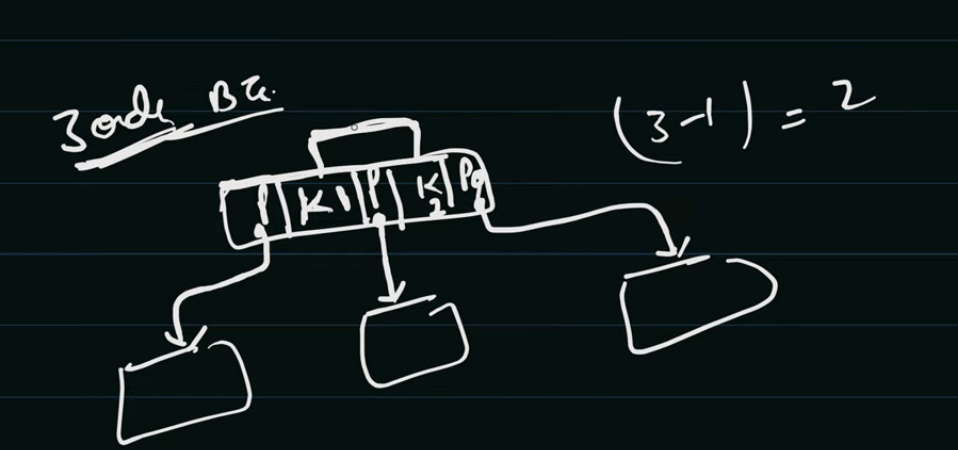 3 orde B Tr.
(3-1) = 2
P K1 P K2 P